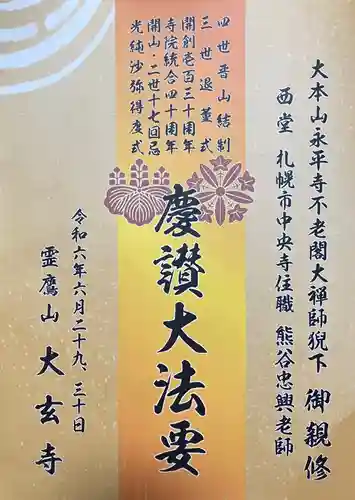 大本山永平寺不老閣大禅師猊下 御親修
西堂 札幌市中央寺住職 熊谷忠興老師
四世晋山結制
三世退董式
開創壱百三十周年
寺院統合四十周年
開山・二世十七回忌
光純沙弥得度式
慶讃大法要
令和六年六月二十九、三十日
霊鷹山 大玄寺